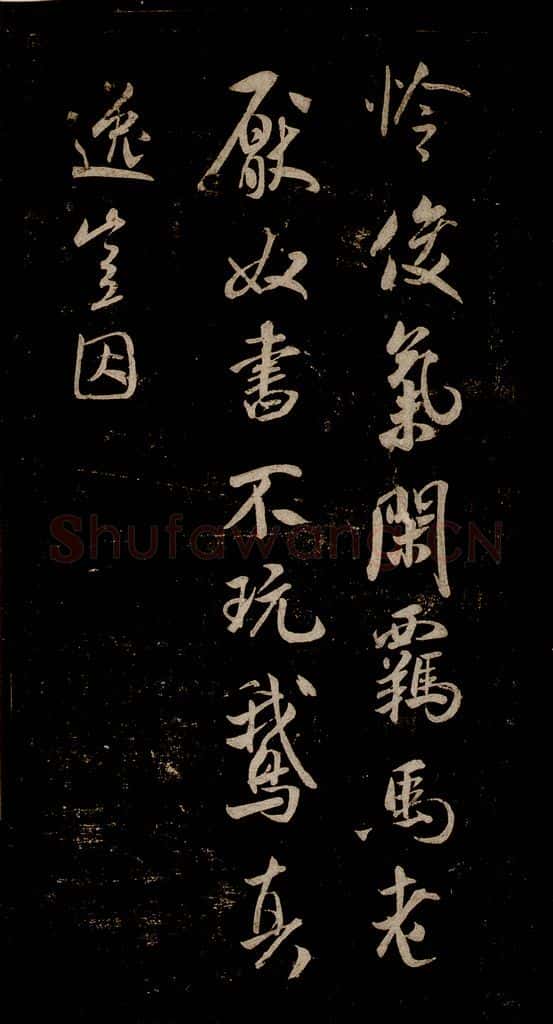 怜俊氣閑羈馬老
厭奴書不玩鵝真
逸豈因
Shufawang.CN